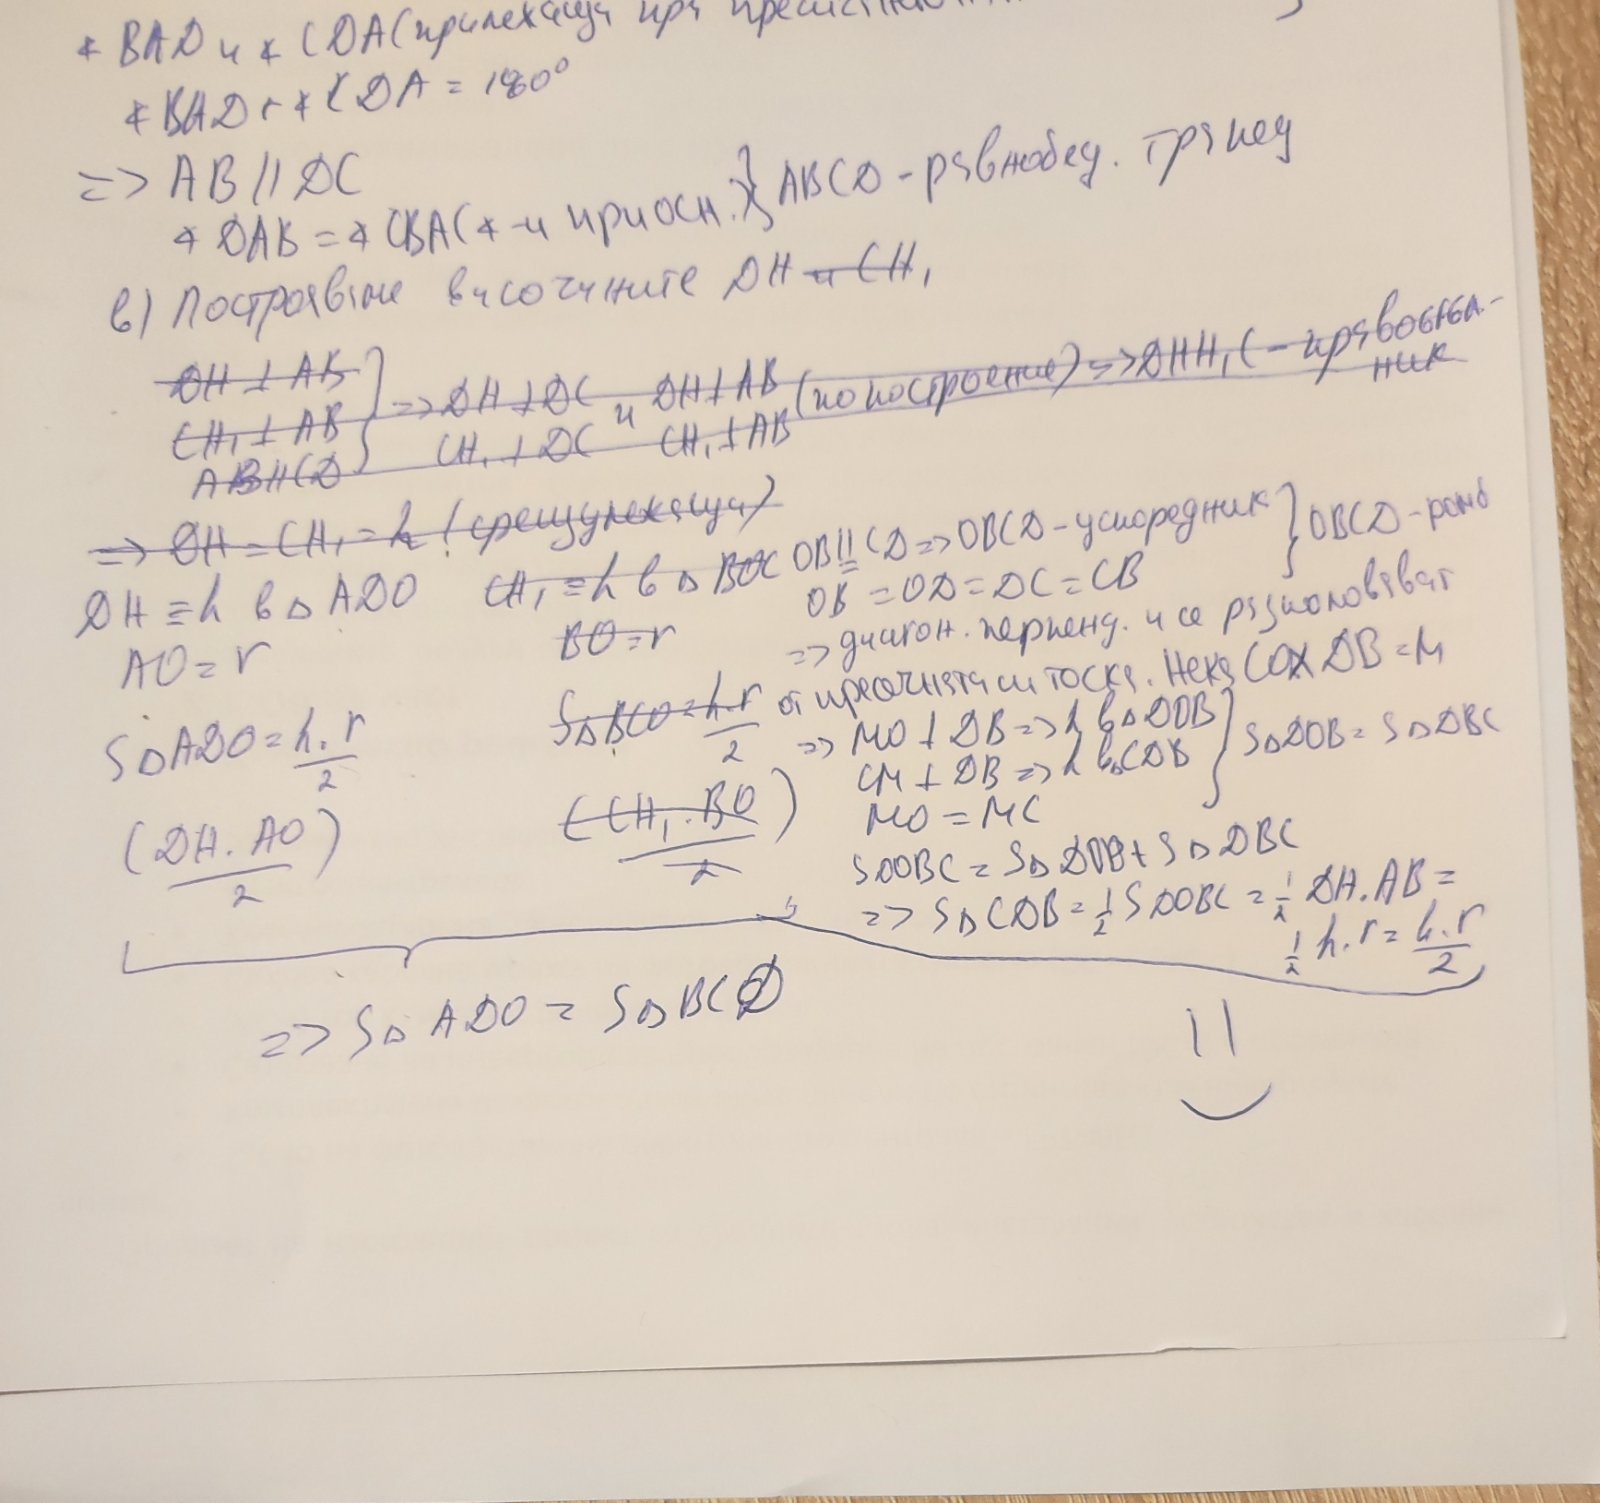 ∢ BAD и ∢ CDA (прилежащи при
∢ BAD + ∢ CDA = 180°
=> AB // DC
∢ DAB = ∢ CBA (∢-и при осн.) } ABCD - равнобед. трапец
в) Построяваме височините DH и CH₁
DH ⊥ AB
CH₁ ⊥ AB
AB // CD
} => DH ⊥ DC и DH ⊥ AB (по построение) => DHH₁C - правоъгълник
CH₁ ⊥ DC CH₁ ⊥ AB
=> DH = CH₁ = h (срещулежащи)
DH ≡ h в △ ADO
AO = r
S△ADO = h.r/2
(DH.AO/2)
CH₁ ≡ h в △ BOC
BO = r
S△BCO = h.r/2
(CH₁.BO/2)
OB || CD => OBCD - успоредник } OBCD - ромб
OB = OD = DC = CB
=> диагон. перпенд. и се разполовяват
от пресечната си точка. Нека CO X DB = M
=> MO ⊥ DB => h в △ DOB } S△DOB = S△DBC
CM ⊥ DB => h в △ CDB
MO = MC
SDOBC = S△DOB + S△DBC
=> S△CDB = 1/2 SDOBC = 1/2 DH.AB =
1/2 h.r = h.r/2
=> S△ADO = S△BCD